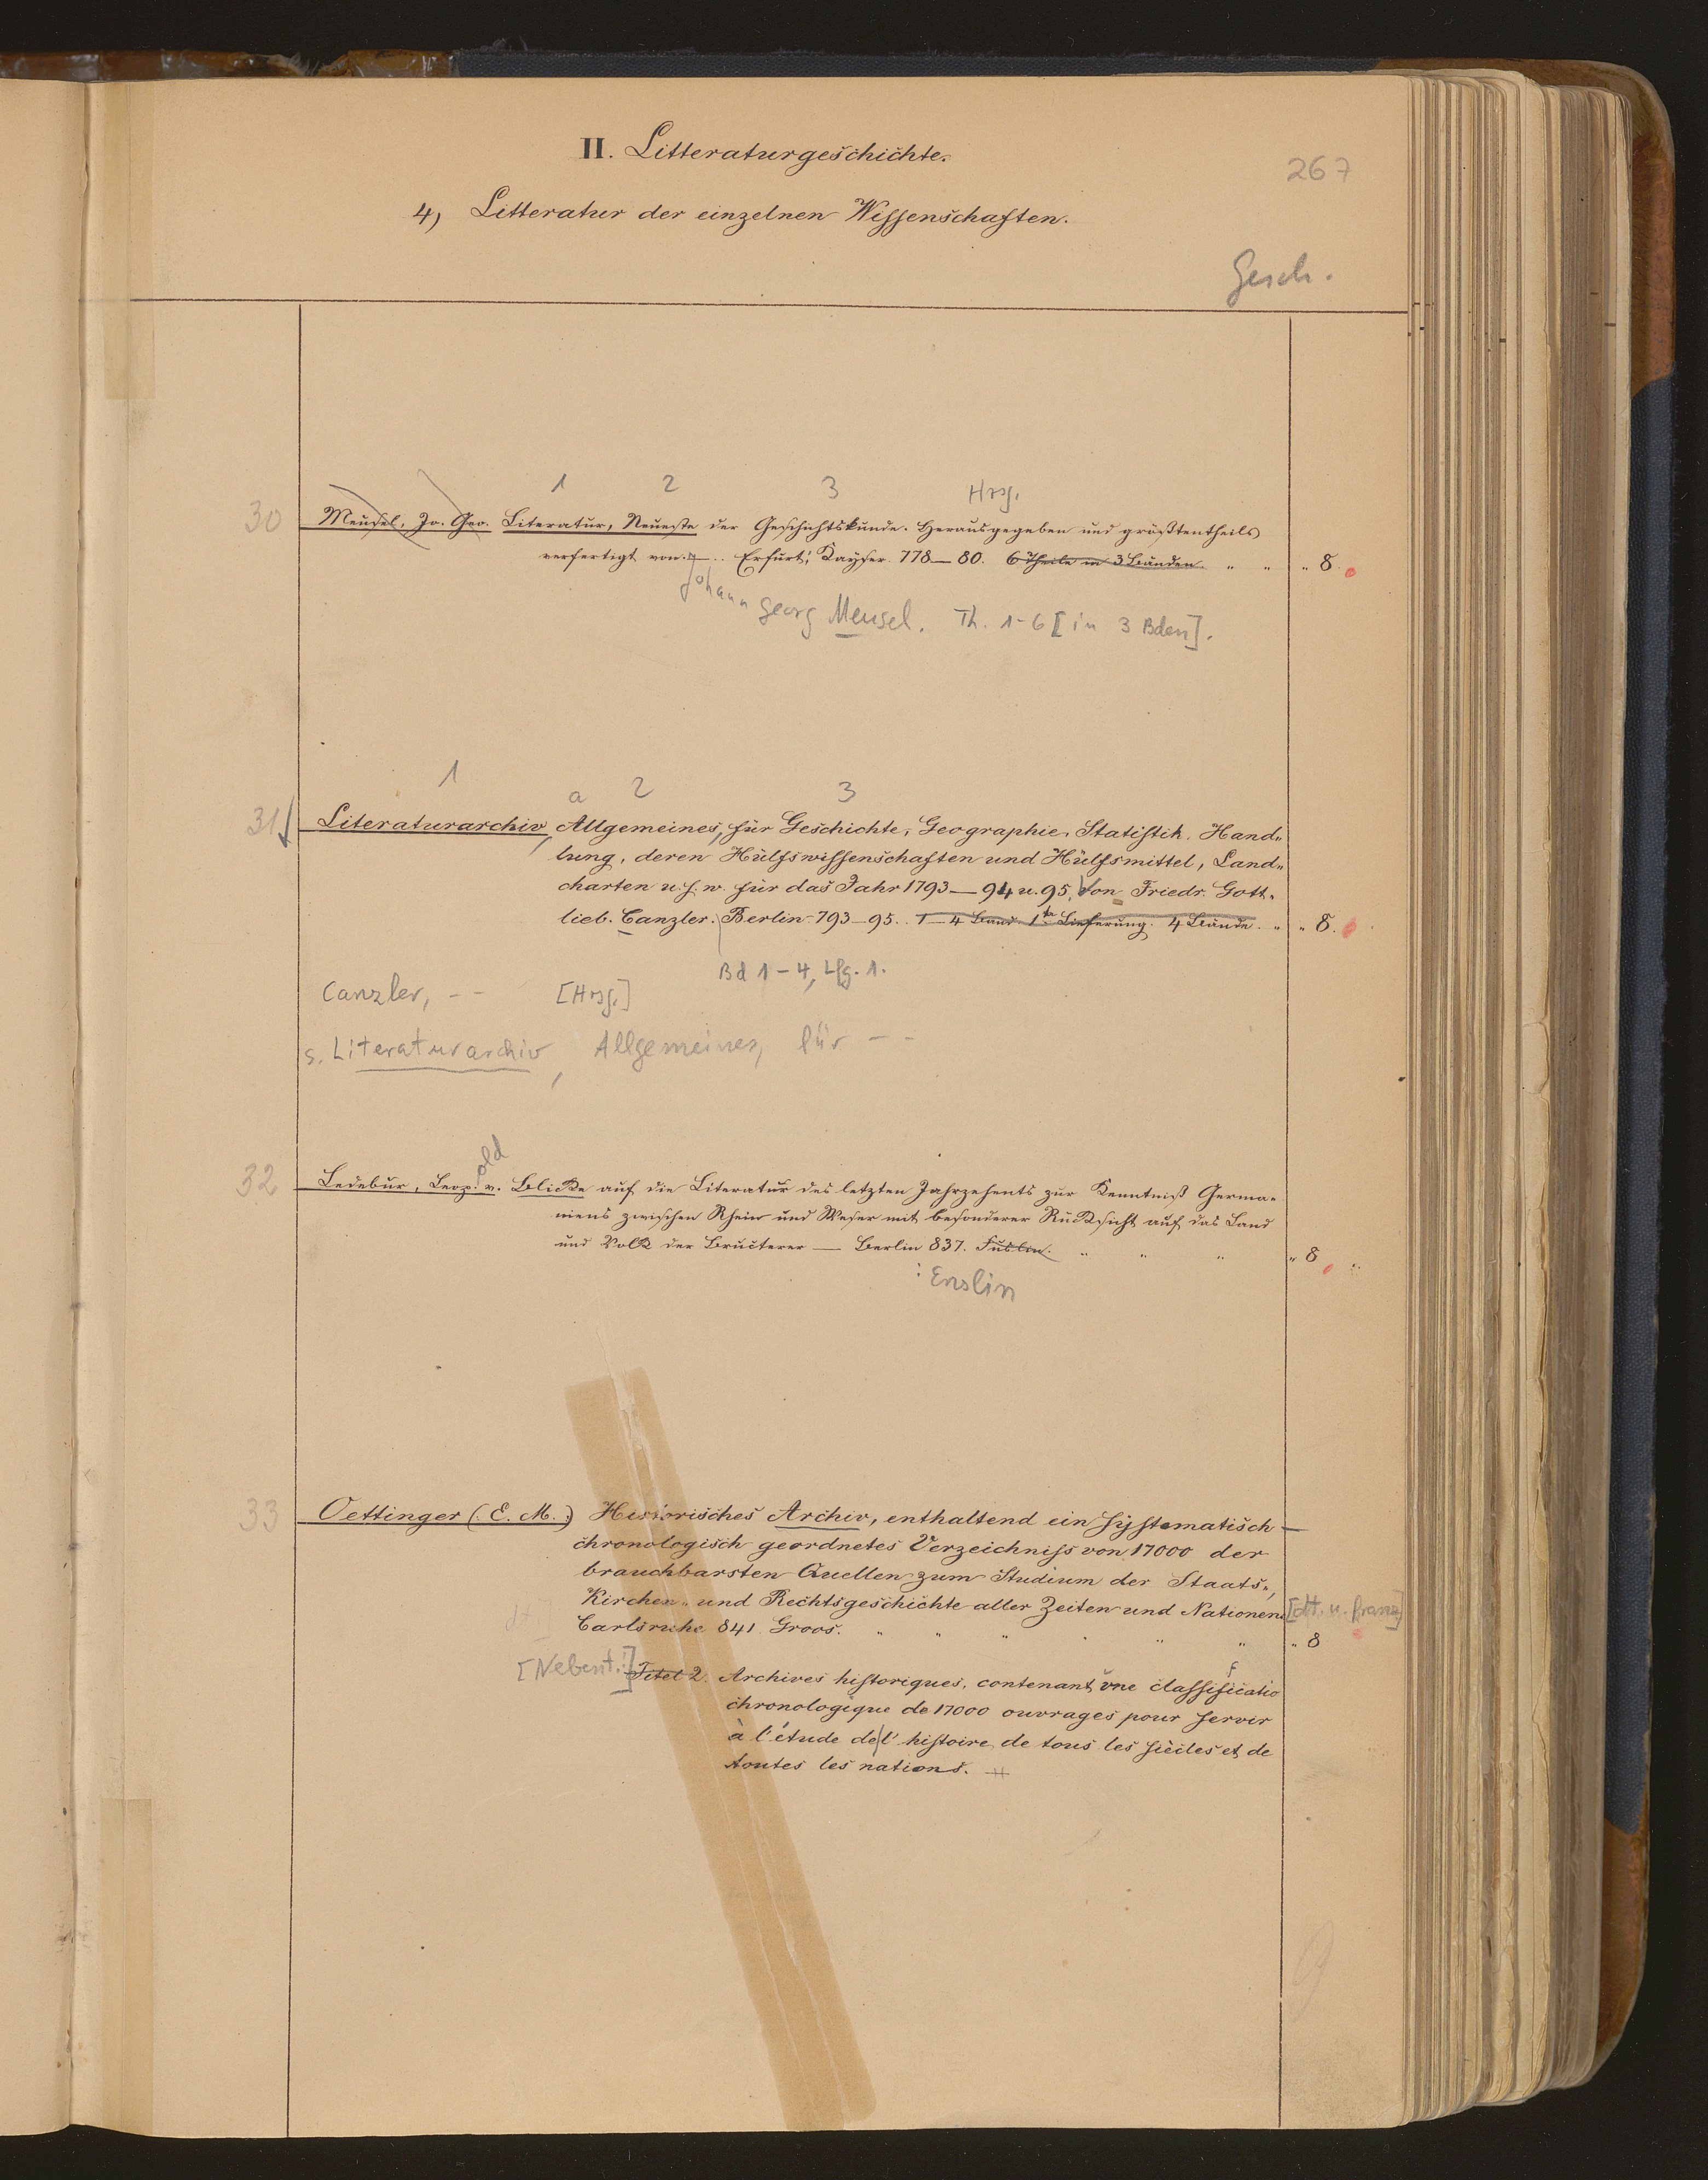 II. Litteraturgeschichte.
267
4) Litteratur der einzelnen Wissenschaften.
Gesch.
1 2 3 Hrsg.
30 Meusel, Jo. Geo. Literatur, Neueste der Geschichtskunde. Herausgegeben und größtentheils
verfertigt von. Erfurt: Kayser. 778—80. 6 Theile in 3 Bänden. " " " 8.
Johann Georg Meusel. Th. 1-6 [in 3 Bden].
1 a 2 3
31 Literaturarchiv, Allgemeines, für Geschichte, Geographie, Statistik, Hand„
lung, deren Hülfswissenschaften und Hülfsmittel, Land„
charten u.s.w. für das Jahr 1793—94 u. 95. Von Friedr. Gott„
lieb. Canzler. Berlin 793—95. 1—4 Band. 1te Lieferung. 4 Bände. " " 8.
Bd 1-4, Lfg. 1.
Canzler, - - [Hrsg.]
s. Literaturarchiv, Allgemeines, für - -
old
32 Ledebur, Leop. v. Blicke auf die Literatur des letzten Jahrzehents zur Kenntniß Germa„
niens zwischen Rhein und Weser mit besonderer Rücksicht auf das Land
und Volk der Bructerer — Berlin 837. " " " " 8
: Enslin
33 Oettinger (E. M.) Historisches Archiv, enthaltend ein systematisch—
chronologisch geordnetes Verzeichniss von 17000 der
brauchbarsten Quellen zum Studium der Staats„,
Kirchen„ und Rechtsgeschichte aller Zeiten und Nationen [dt. u. franz]
Carlsruhe 841. Groos. " " " " " " " 8
[Nebent.:] Titel 2. Archives historiques, contenant une classificatio
chronologique de 17000 ouvrages pour servir
à l'étude de l'histoire de tous les siècles et de
toutes les nations.